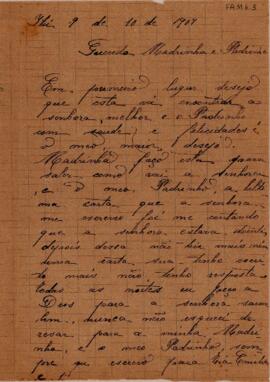 FAMb.3
9 de 10 de 1907
Querida Madrinha e Padrinho
Em primeiro lugar desejo
que esta vá encontrar a
senhora, melhor e o Padrinho
com saude e felicidades é
o meu maior desejo.
Madrinha faço esta para
saber como vai a senhora
e o meu Padrinho, a ulti
ma carta que a senhora
me escreveu foi me contando
que a senhora estava doente
depois dessa não
carta, tenho
mais não, tenho resposta
todas as noites eu peço a
Deus para a senhora, sarar
nunca não esqueci de
resar para a minha Madri
nha, e o meu Padrinho, sem
pre que escrevo para tia Emilia